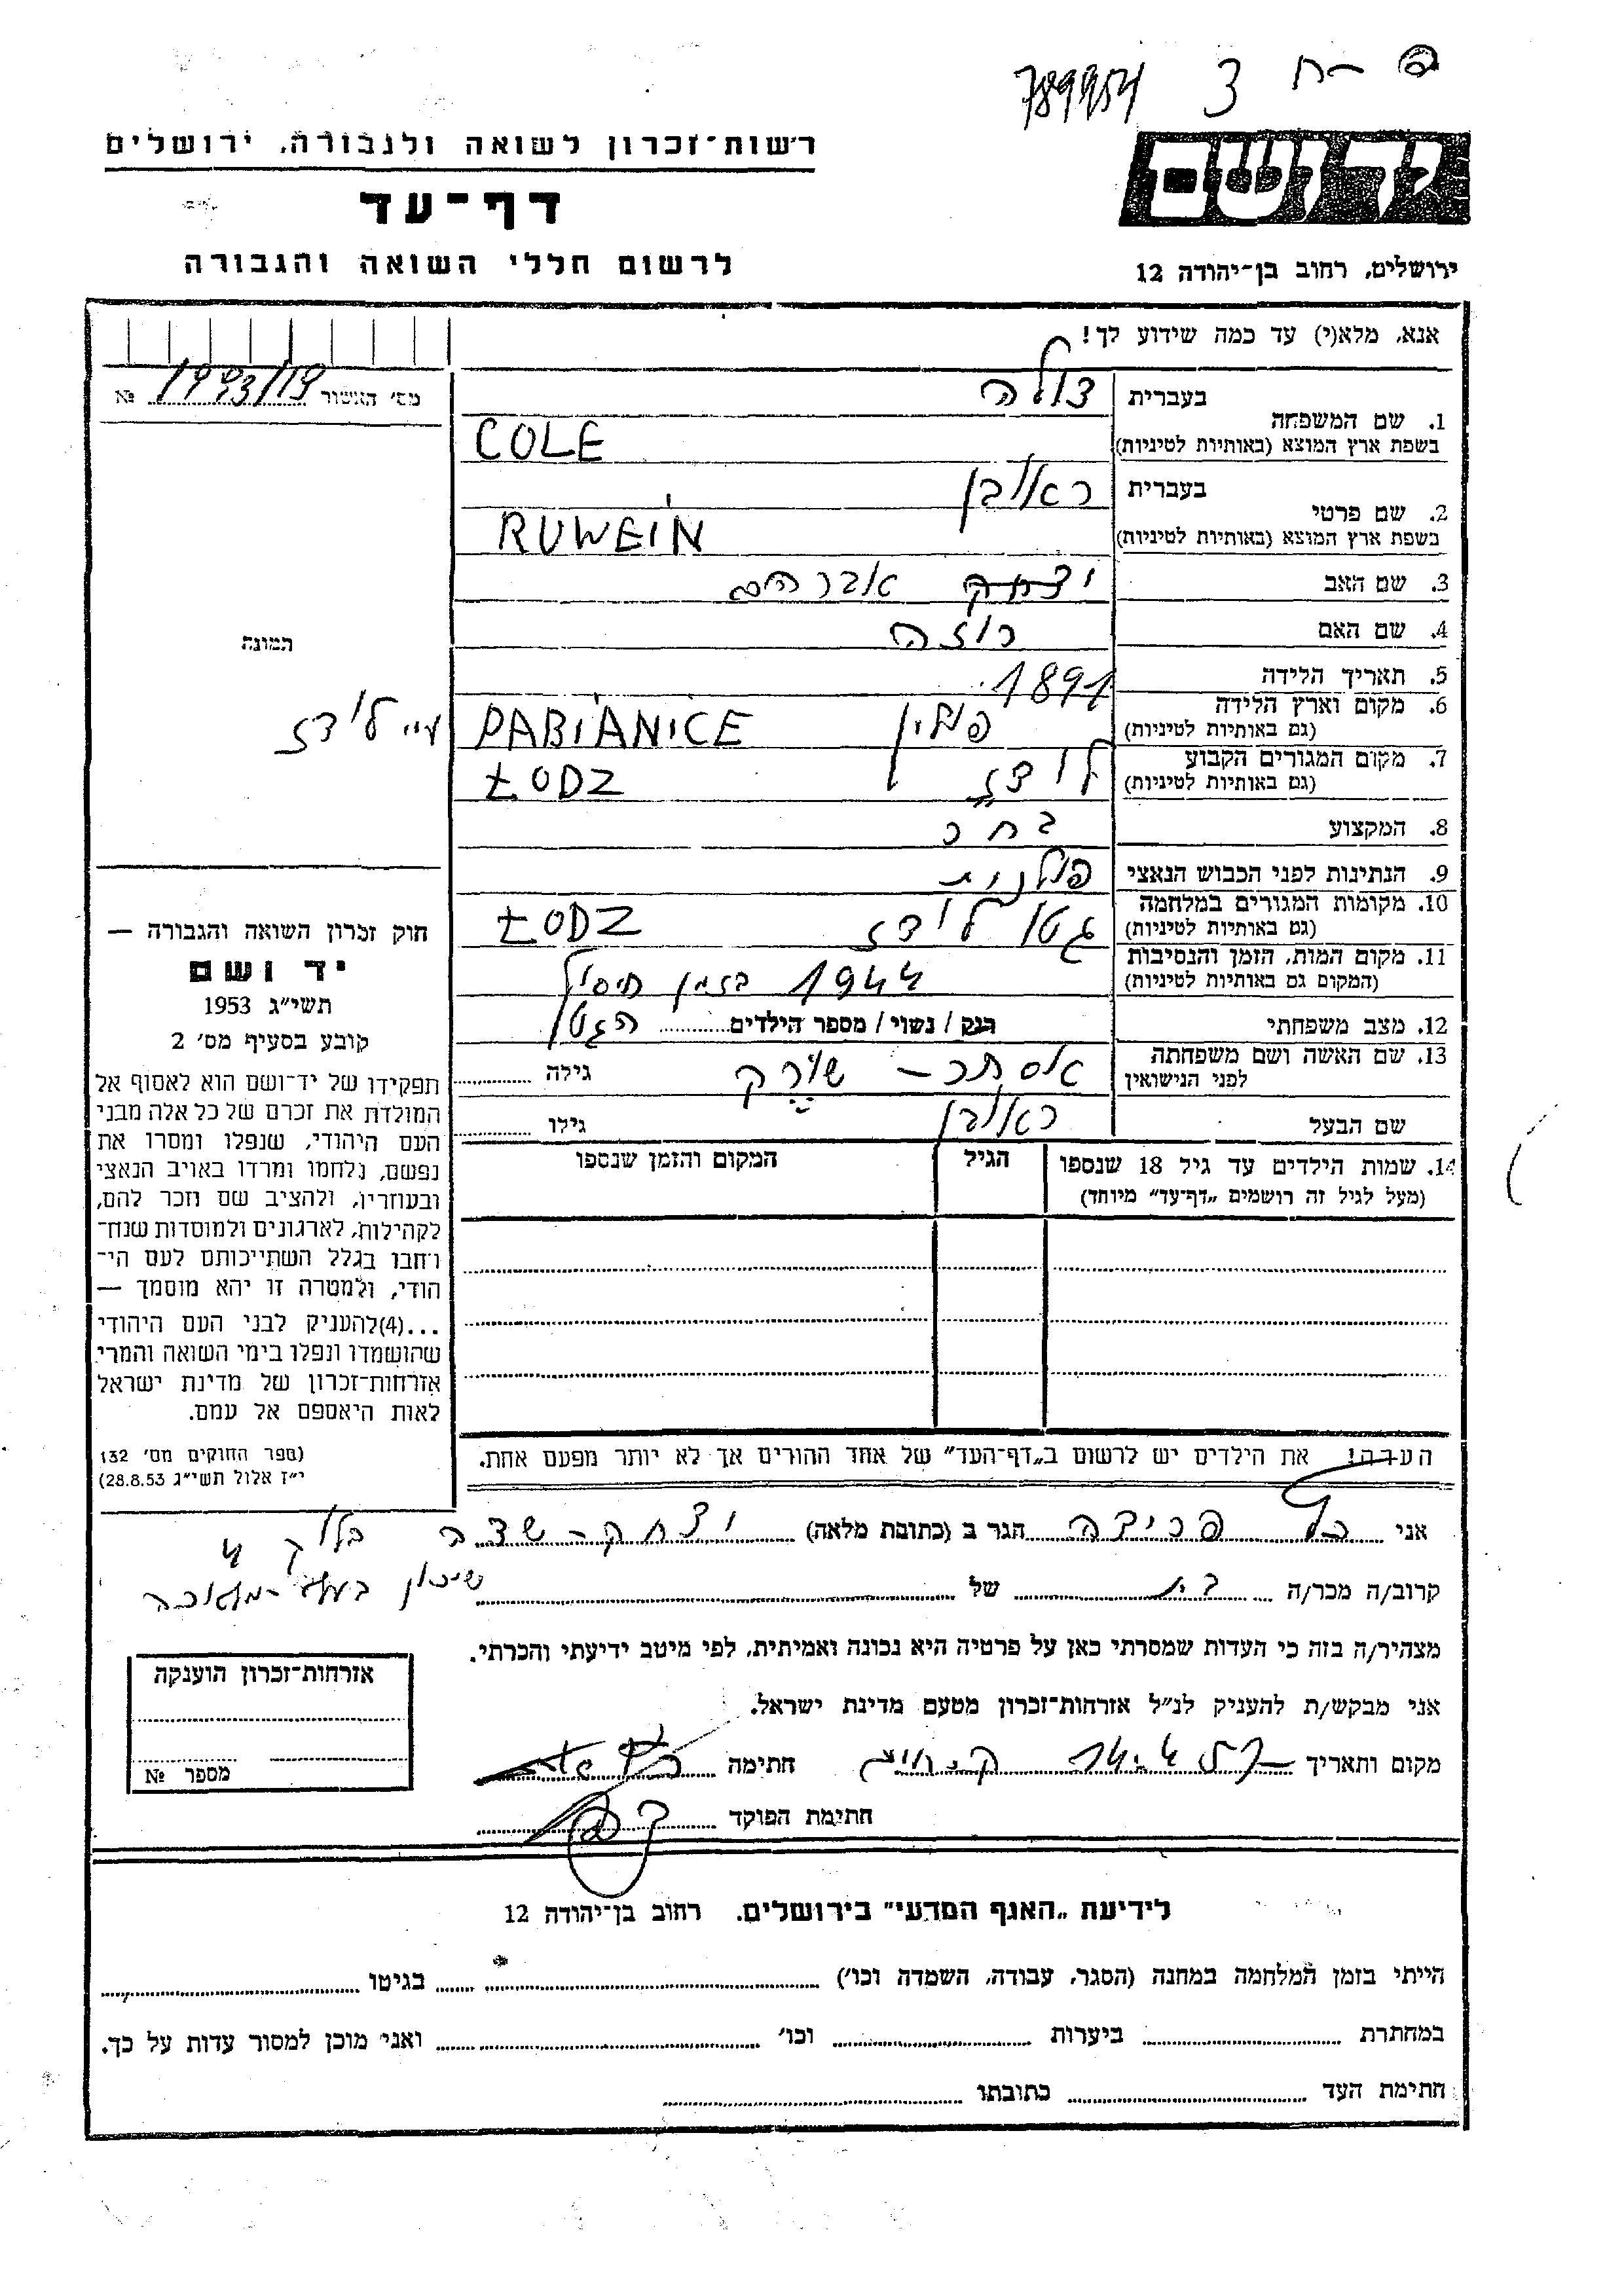 789954 3 ח-פ
רשות-זכרון לשואה ולגבורה, ירושלים
יד ושם
דף-עד
לרשום חללי השואה והגבורה
ירושלים, רחוב בן-יהודה 12
אנא, מלא(י) עד כמה שידוע לך!
מס' האשור 1993/119 №
1. שם המשפחה
בעברית צולה
בשפת ארץ המוצא (באותיות לטיניות) COLE
2. שם פרטי
בעברית ראובן
בשפת ארץ המוצא (באותיות לטיניות) RUWEIN
3. שם האב יצחק אברהם
4. שם האם רוזה
תמונה
5. תאריך הלידה 1891
6. מקום וארץ הלידה
(גם באותיות לטיניות) פולין PABIANICE ע"י לודז
7. מקום המגורים הקבוע
(גם באותיות לטיניות) לודז ŁODZ
8. המקצוע
9. הנתינות לפני הכבוש הנאצי פולנית
10. מקומות המגורים במלחמה
(גם באותיות לטיניות) גטו לודז ŁODZ
11. מקום המות, הזמן והנסיבות
(המקום גם באותיות לטיניות) 1944 בזמן חיסול
12. מצב משפחתי רנק / נשוי / מספר הילדים הגטו
13. שם האשה ושם משפחתה
לפני הנישואין אסתר - שורק גילה
שם הבעל ראובן גילו
14. שמות הילדים עד גיל 18 שנספו
(מעל לגיל זה רושמים „דף-עד" מיוחד)
הגיל
המקום והזמן שנספו
חוק זכרון השואה והגבורה —
יד ושם
תשי"ג 1953
קובע בסעיף מס' 2
תפקידו של יד-ושם הוא לאסוף אל
המולדת את זכרם של כל אלה מבני
העם היהודי, שנפלו ומסרו את
נפשם, נלחמו ומרדו באויב הנאצי
ובעוזריו, ולהציב שם וזכר להם,
לקהילות, לארגונים ולמוסדות שנח-
רבו בגלל השתייכותם לעם הי-
הודי, ולמטרה זו יהא מוסמך —
...(4)להעניק לבני העם היהודי
שהושמדו ונפלו בימי השואה והמרי
אזרחות-זכרון של מדינת ישראל
לאות היאספם אל עמם.
(ספר החוקים מס' 132
י"ז אלול תשי"ג 28.8.53)
הערה! את הילדים יש לרשום ב„דף-העד" של אחד ההורים אך לא יותר מפעם אחת.
אני פרידה הגר ב (כתובת מלאה) יצחק-שדה בלוק 4
קרוב/ה מכר/ה של שיכון
מצהיר/ה בזה כי העדות שמסרתי כאן על פרטיה היא נכונה ואמיתית, לפי מיטב ידיעתי והכרתי.
אני מבקש/ת להעניק לנ"ל אזרחות-זכרון מטעם מדינת ישראל.
מקום ותאריך חתימה
חתימת הפוקד
אזרחות-זכרון הוענקה
מספר №
לידיעת „האגף המדעי" בירושלים, רחוב בן-יהודה 12
הייתי בזמן המלחמה במחנה (הסגר, עבודה, השמדה וכו') בגיטו
במחתרת ביערות וכו' ואני מוכן למסור עדות על כך.
חתימת העד כתובתו